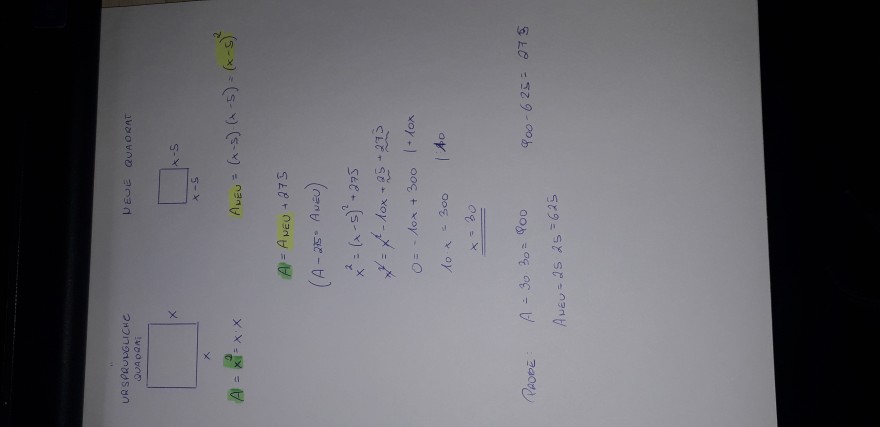 URSPRÜNGLICHE QUADRAT
NEUE QUADRAT
x
x
x-5
x-5
A = x² = x · x
A NEU = (x-5) (x-5) = (x-5)²
A = A NEU + 275
(A - 275 = A NEU)
x² = (x-5)² + 275
x² = x² - 10x + 25 + 275
0 = -10x + 300 | + 10x
10x = 300 | 10
x = 30
PROBE: A = 30 30 = 900
A NEU = 25 25 = 625
900 - 625 = 275